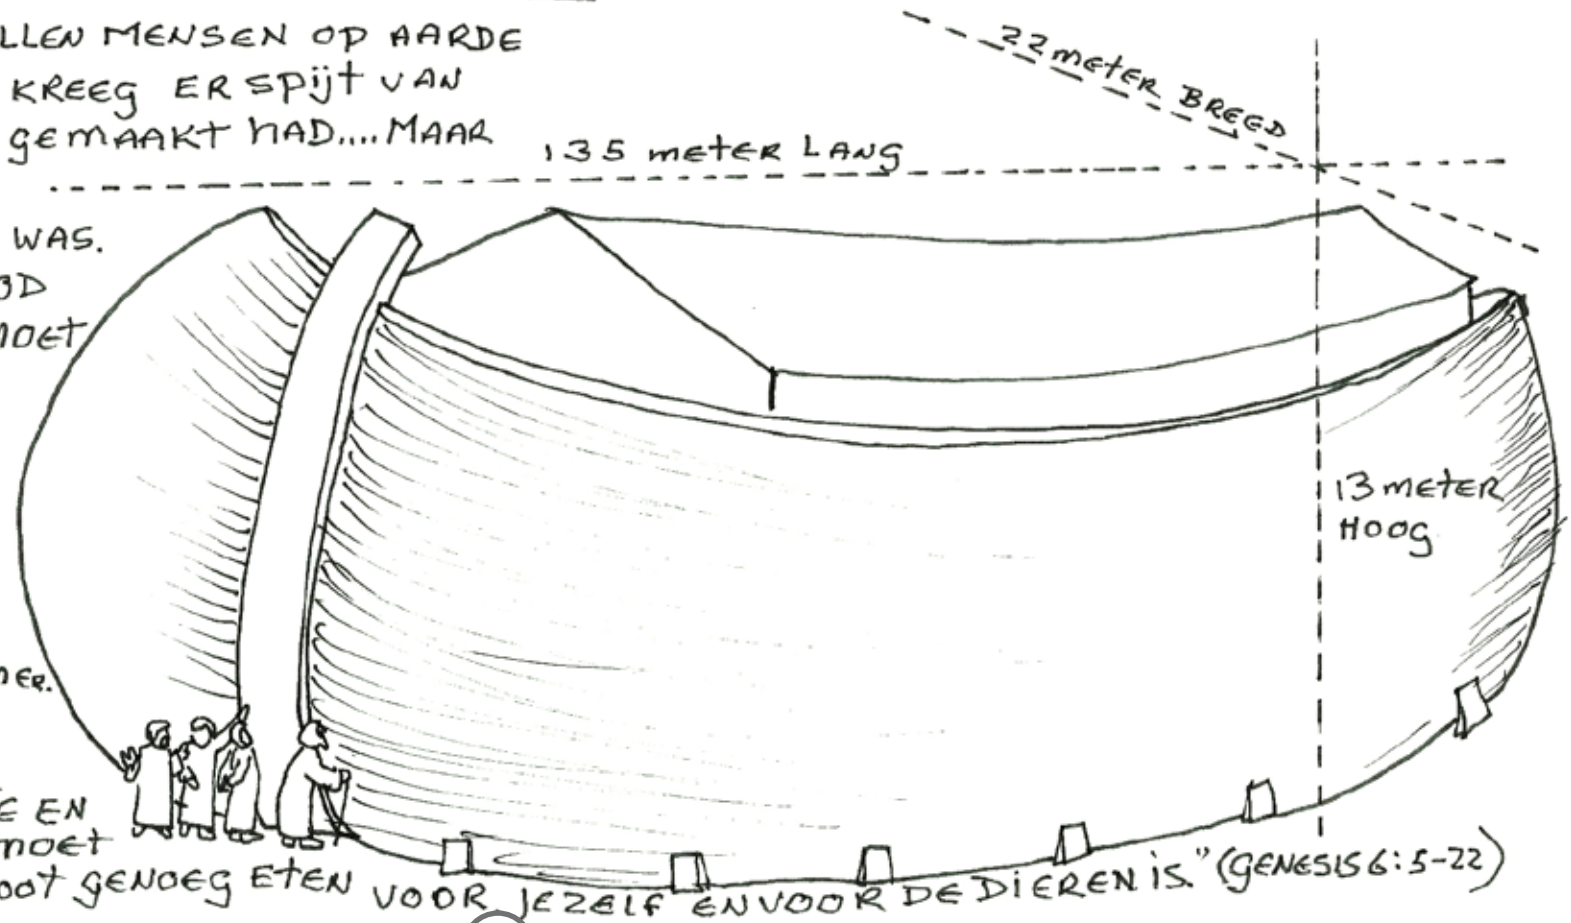 LLEN MENSEN OP AARDE
KREEG ER SPIJT VAN
GEMAAKT HAD....MAAR
22 METER BREED
135 METER LANG
WAS.
OD
MOET
13 METER
HOOG
DER.
E EN
MOET
OOT GENOEG ETEN VOOR JEZELF EN VOOR DE DIEREN IS." (GENESIS 6:5-22)